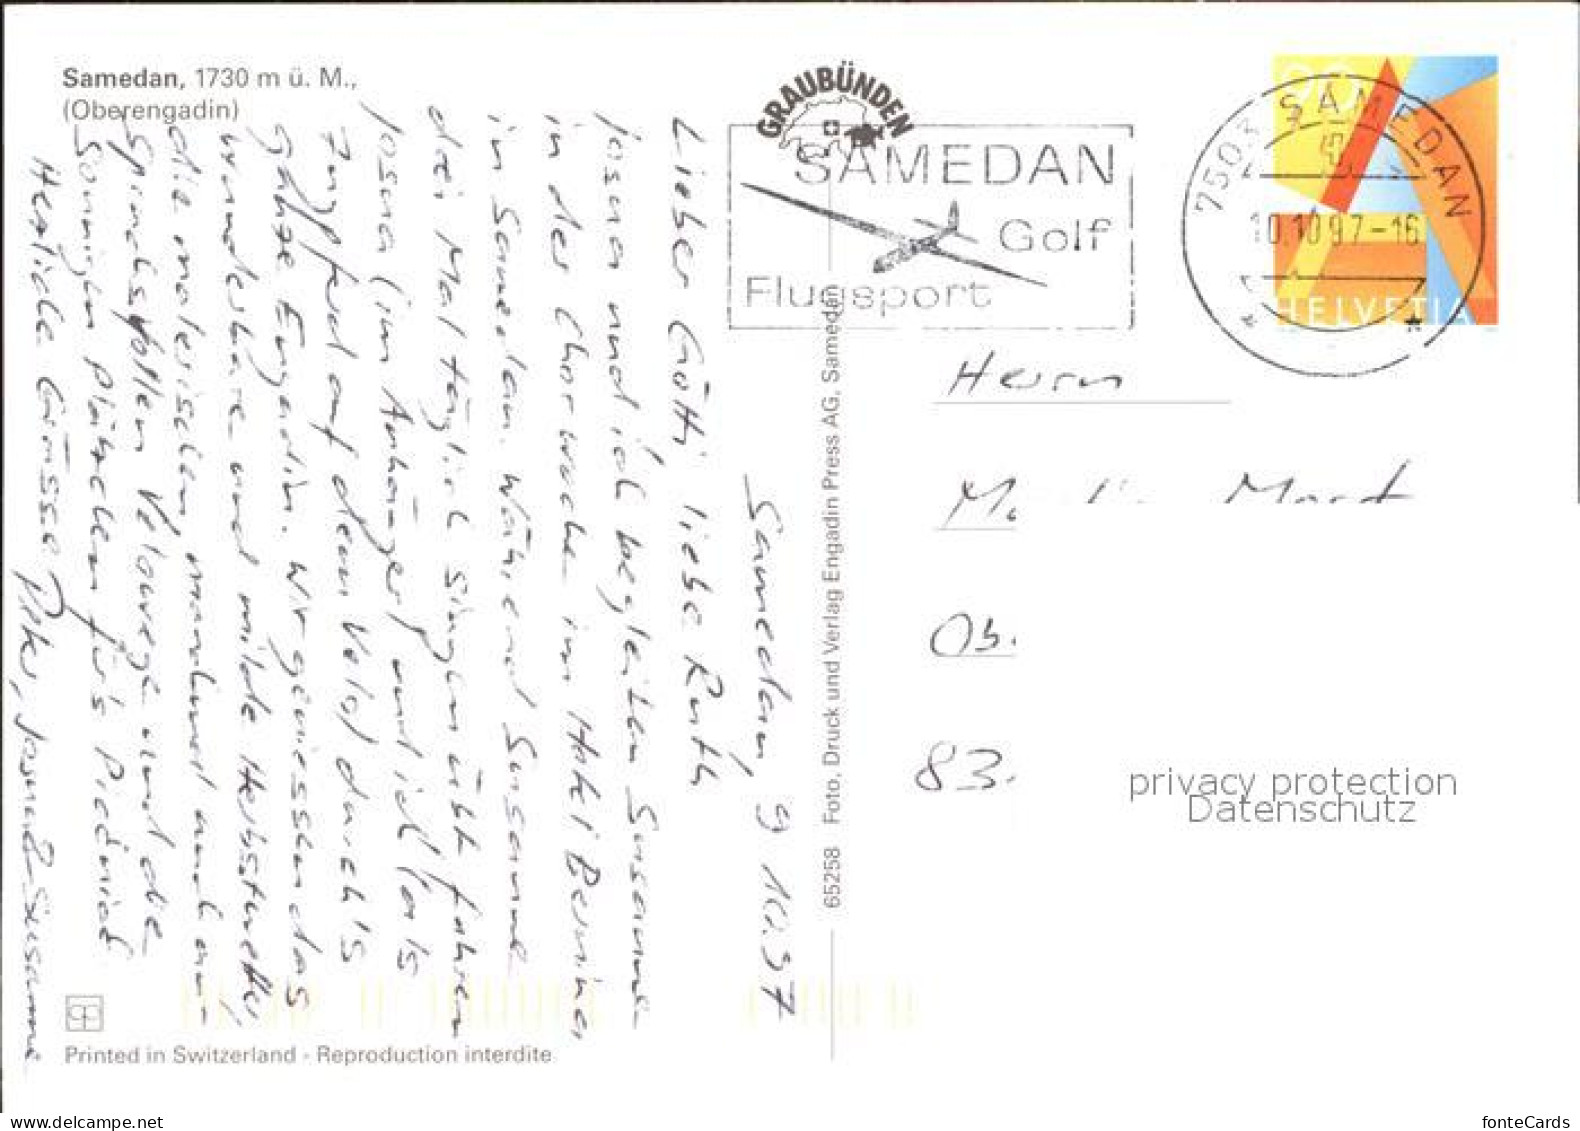 Samedan, 1730 m ü. M.,
(Oberengadin)
GRAUBÜNDEN
SAMEDAN
Golf
Flugsport
7503 SAMEDAN
10.10.97-16
90
HELVETIA
Samedan, 9.10.97
Lieber Götti, liebe Ruth
Josua und ich begleiten Susanne
in der Chorwoche im Hotel Bernina,
in Samedan. Während Susanne
drei Mal täglich singen übt fahren
Josua (im Anhänger) und ich (als
Zugpferd auf dem Velo) durch's
ganze Engadin. Wir geniessen das
wunderbare und milde Herbstwetter,
die malerischen, manchmal auch an-
spruchsvollen Velowege und die
sonnigen Plätzchen für's Picknick.
Herzliche Grüsse Peter, Josua & Susanne
Herrn
83
65258 Foto, Druck und Verlag Engadin Press AG, Samedan
Printed in Switzerland - Reproduction interdite
privacy protection
Datenschutz
www.delcampe.net
fonteCards